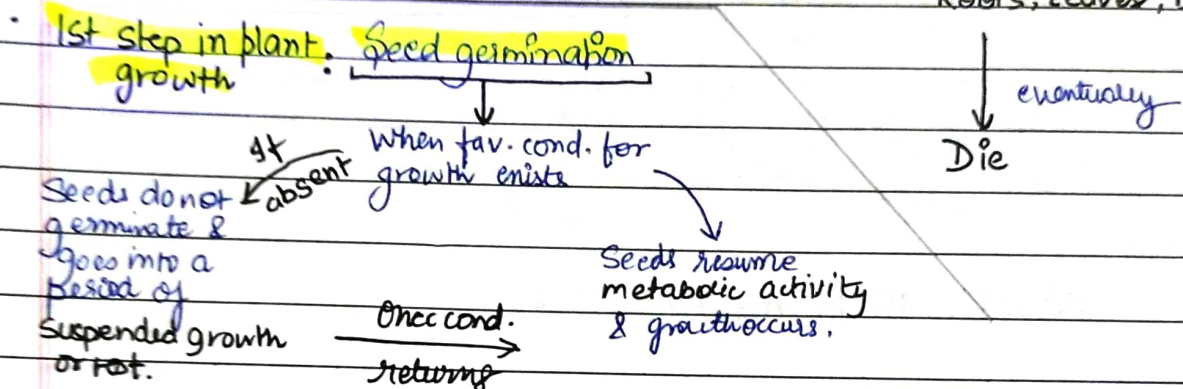 • 1st step in plant : Seed germination
growth
eventually
Die
When fav. cond. for
growth exists
If
absent
Seeds do not
germinate &
goes into a
period of
suspended growth
or rest.
Once cond.
returns
Seeds resume
metabolic activity
& growth occurs.